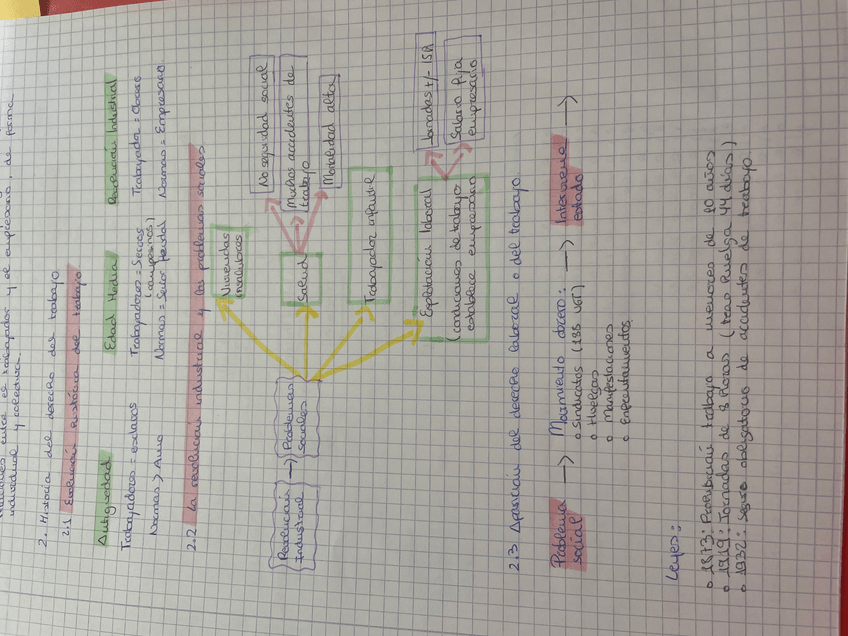 relaciones entre el trabajador y el empresario, de forma
individual y colectiva.
2. Historia del derecho del trabajo
2.1 Evolución histórica del trabajo
Antiguedad
Trabajadores = esclavos
Normas > Amo
Edad Media
Trabajadores = Siervos
(campesinos)
Normas = Señor feudal
Revolución Industrial
Trabajador = Obrero
Normas = Empresario
2.2 La revolución industrial y los problemas sociales
Revolución
Industrial
→ Problemas
sociales
Viviendas
insalubres
Salud
No seguridad social
Muchos accidentes de
trabajo
Mortalidad alta
Trabajador infantil
Explotación laboral
(condiciones de trabajo
establece empresario
Jornadas +/- 15h
Salario fija
empresario
2.3 Aparición del derecho laboral o del trabajo
Problema
social
→ Movimiento obrero:
o sindicatos (188 UGT)
o Huelgas
o Manifestaciones
o Enfrentamientos
→ Intervención
estado →
Leyes:
o 1873: Prohibición trabajo a menores de 10 años
o 1919: Jornadas de 8 horas (tras huelga 44 días)
o 1932: Seguro obligatorio de accidentes de trabajo.